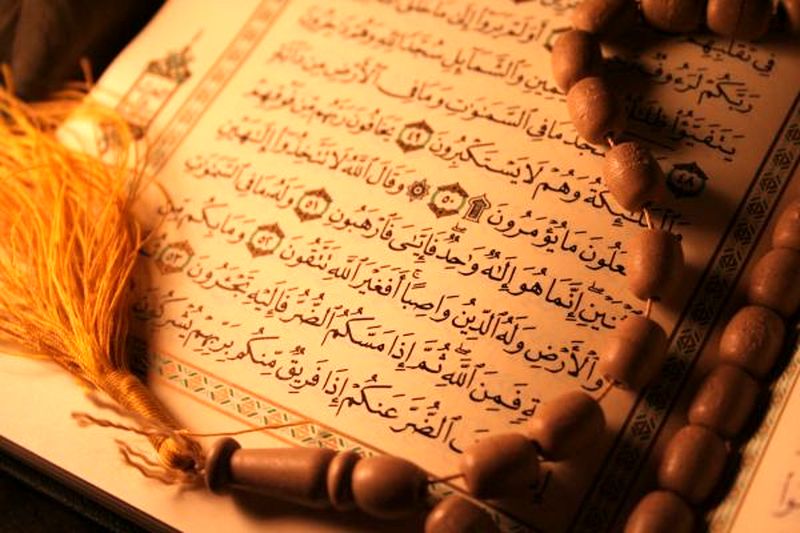 فِى تَقَلُّبِهِمْ
رَبَّكُمْ لَرَءُوفٌ أَوَلَمْ يَرَوْا۟ إِلَىٰ مَا خَلَقَ
يَتَفَيَّؤُا۟ ظِلَٰلُهُۥ ٱلْيَمِينِ وَٱلشَّمَآئِلِ سُجَّدًا لِّلَّهِ وَهُمْ دَٰخِرُونَ
٤٨ يَسْجُدُ مَا فِى ٱلسَّمَٰوَٰتِ وَمَا فِى ٱلْأَرْضِ مِن دَآبَّةٍ
وَٱلْمَلَٰٓئِكَةُ وَهُمْ لَا يَسْتَكْبِرُونَ ٤٩ يَخَافُونَ رَبَّهُم مِّن فَوْقِهِمْ
عَلُونَ مَا يُؤْمَرُونَ ۩ ٥٠ ۞ وَقَالَ ٱللَّهُ لَا تَتَّخِذُوٓا۟ إِلَٰهَيْنِ
ثْنَيْنِ إِنَّمَا هُوَ إِلَٰهٌ وَٰحِدٌ فَإِيَّٰىَ فَٱرْهَبُونِ ٥١ وَلَهُۥ مَا فِى ٱلسَّمَٰوَٰتِ
وَٱلْأَرْضِ وَلَهُ ٱلدِّينُ وَاصِبًا أَفَغَيْرَ ٱللَّهِ تَتَّقُونَ ٥٢ وَمَا بِكُم مِّن
ةٍ فَمِنَ ٱللَّهِ ثُمَّ إِذَا مَسَّكُمُ ٱلضُّرُّ فَإِلَيْهِ تَجْـَٔرُونَ ٥٣
فَ ٱلضُّرَّ عَنكُمْ إِذَا فَرِيقٌ مِّنكُم بِرَبِّهِمْ يُشْرِكُونَ